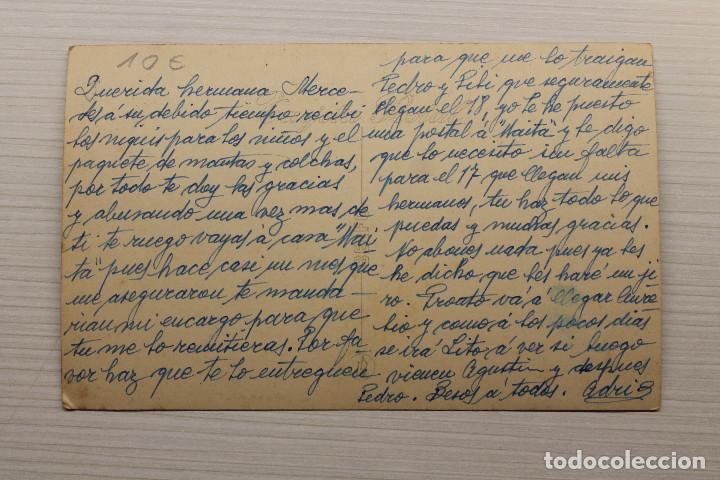 10 €
Querida hermana Merce-
des á su debido tiempo recibí
los niquis para los niños y el
paquete de mantas y colchas,
por todo te doy las gracias
y abusando una vez mas de
ti te ruego vayas á casa "Mai-
ta" pues hace casi un mes que
me aseguraron te manda-
rian mi encargo para que
tu me lo remitieras. Por fa-
vor haz que te lo entreguen
para que me lo traigan
Pedro y Pili que seguramente
llegan el 18, yo le he puesto
una postal á "Maita" y le digo
que lo necesito sin falta
para el 17 que llegan mis
hermanos, tu haz todo lo que
puedas y muchas gracias.
No abones nada pues ya les
he dicho que les haré un ji-
ro. Pronto vá á llegar Aure-
lio y como á los pocos dias
se irá Lito, á ver si luego
vienen Agustin y despues
Pedro. Besos a todos. Adri
todocoleccion.net